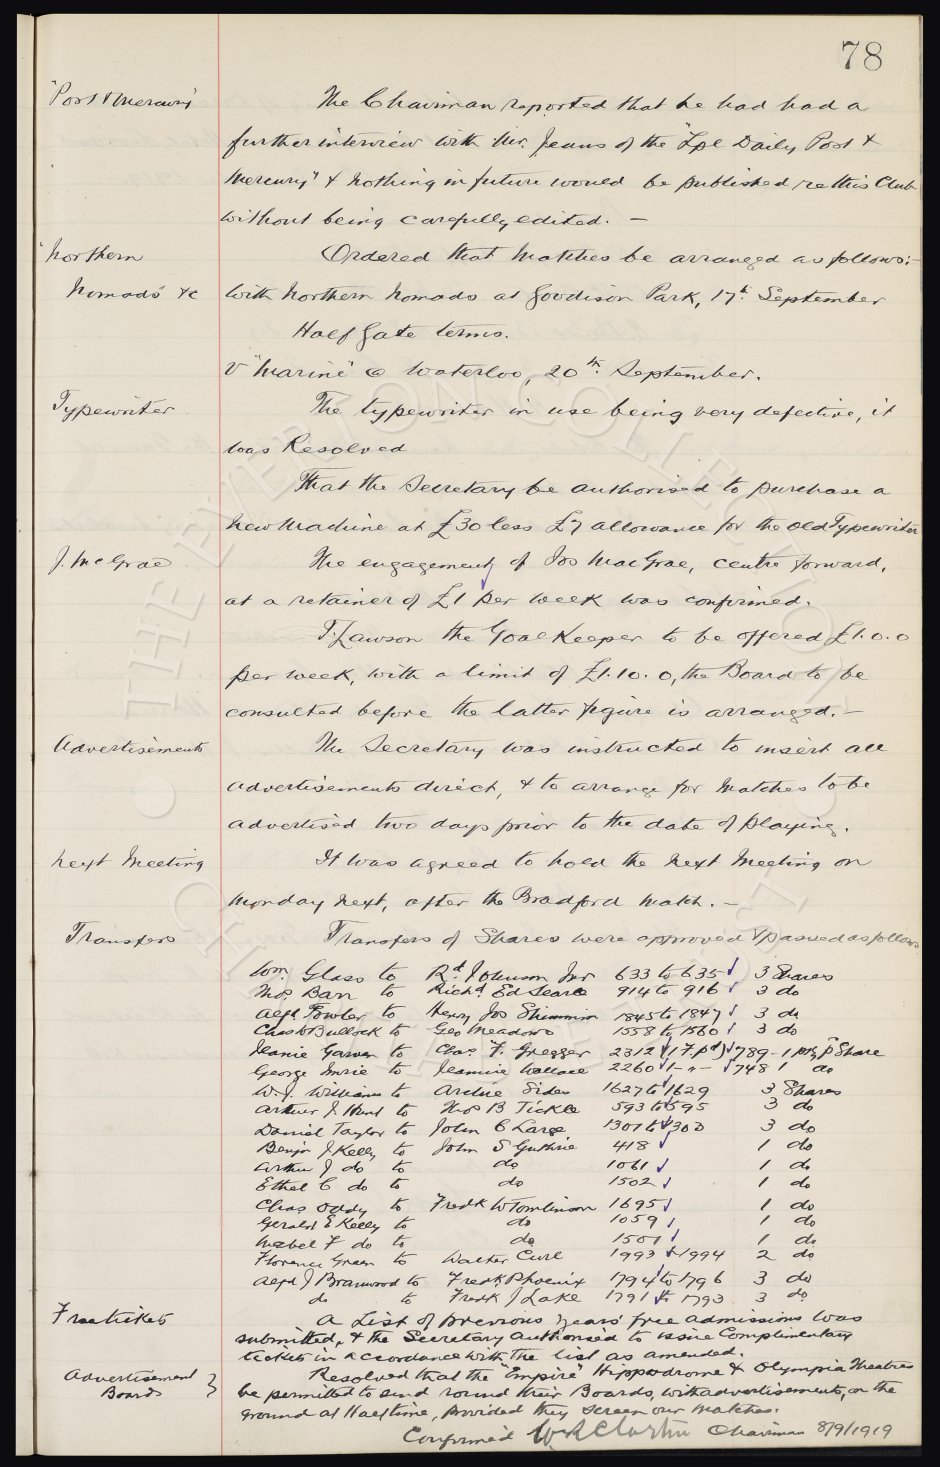 78
"Post & Mercury" The Chairman reported that he had had a
further interview with Mr. Jeans of the "Lpl Daily Post &
Mercury" & nothing in future would be published re this Club
without being carefully edited. —
"Northern Ordered that Matches be arranged as follows:-
Nomads" &c With Northern Nomads at Goodison Park, 17th September
Half Gate terms.
V "Marine" @ Waterloo, 20th September.
Typewriter The typewriter in use being very defective, it
was Resolved
That the Secretary be authorised to purchase a
new Machine at £30 less £7 allowance for the old Typewriter
J. McGrae The engagement of Jos MacGrae, centre forward,
at a retainer of £1 per week was confirmed.
T. Lawson the Goal Keeper to be offered £1.0.0
per week, with a limit of £1.10.0, the Board to be
consulted before the latter figure is arranged. —
Advertisements The Secretary was instructed to insert all
advertisements direct, & to arrange for Matches to be
advertised two days prior to the date of playing.
Next Meeting It was agreed to hold the next Meeting on
Monday next, after the Bradford Match. —
Transfers Transfers of Shares were approved & passed as follows
Wm. Glass to Rd. Johnson Jnr 633 to 635 3 Shares
Thos. Barr to Richd. Ed Searle 914 to 916 3 do
Alfd. Fowler to Henry Jos Shimmin 1845 to 1847 3 do
Chas W Bullock to Geo Meadows 1558 to 1560 3 do
Jeanie Garven to Chas. F. Gregger 2312 (1 F.pd) 789 - 1 ptly pd Share
George Imrie to Jeannie Wallace 2260 1 - " - 748 1 do
W. J. Williams to Archie Sides 1627 to 1629 3 Shares
Arthur J. Hunt to Thos B Tickle 593 to 595 3 do
Daniel Taylor to John C Large 1301 to 1303 3 do
Benjn J Kelly to John S Guthrie 418 1 do
Arthur J do to do 1061 1 do
Ethel C do to do 1502 1 do
Chas Oddy to Fredk W Tomlinson 1695 1 do
Gerald E Kelly to do 1059 1 do
Mabel F do to do 1501 1 do
Florence Green to Walter Curl 1993 & 1994 2 do
Alfd J Bramwood to Fredk. Phoenix 1794 to 1796 3 do
do to Fredk J Lake 1791 to 1793 3 do
Free tickets A List of previous years' free admissions was
submitted, & the Secretary authorised to issue Complimentary
tickets in accordance with the list as amended.
Advertisement Resolved that the "Empire" Hippodrome & Olympia Theatres
Boards } be permitted to send round their Boards, with advertisements, on the
ground at Half time, provided they screen our Matches.
Confirmed W R Clayton Chairman 8/9/1919
THE EVERTON COLLECTION